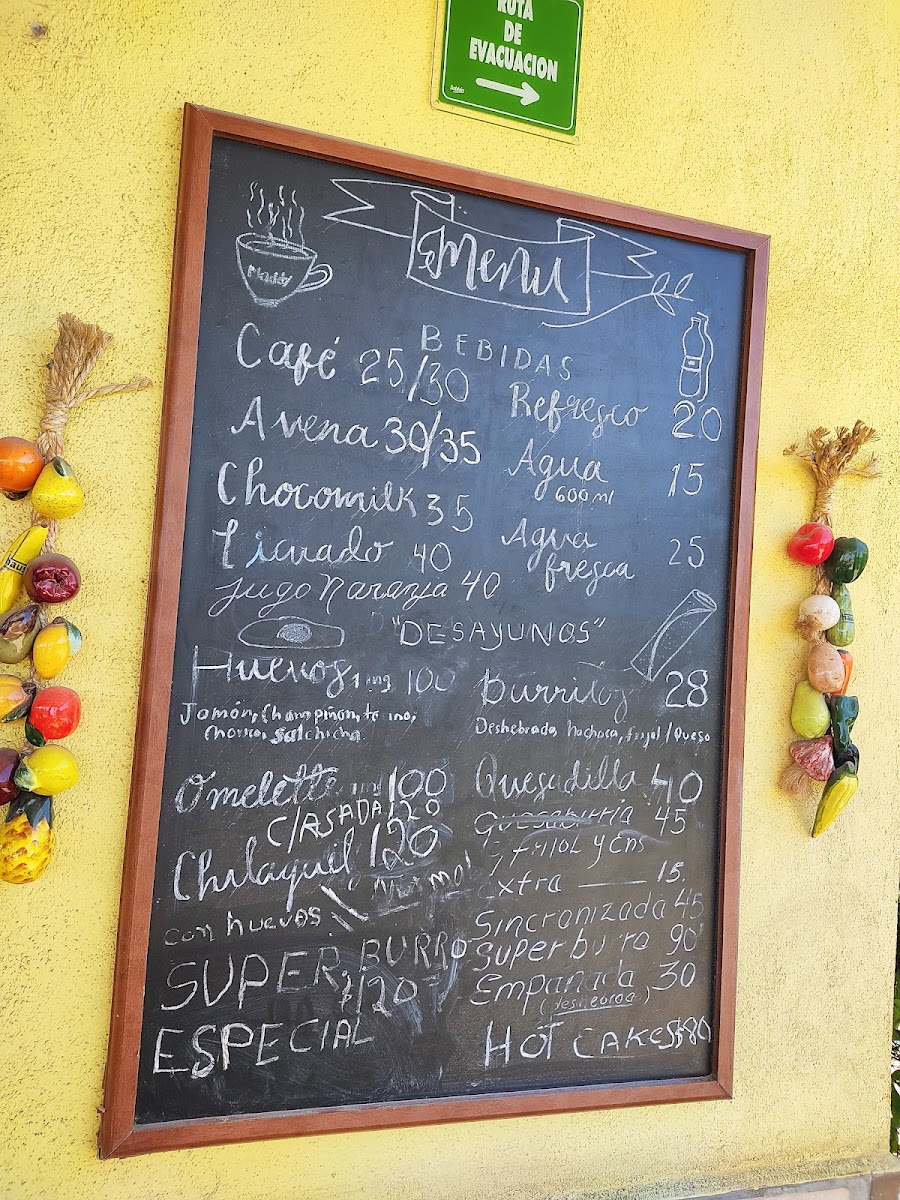 RUTA
DE
EVACUACION
Maddy
Menu
BEBIDAS
Café 25/30
Avena 30/35
Chocomilk 35
Licuado 40
Jugo Naranja 40
Refresco 20
Agua 15
600 ml
Agua
fresca 25
"DESAYUNOS"
Huevos 100
Jamón, Champiñon, tocino,
Chorizo, Salchicha
Omelette 100
C/ASADA 120
Chilaquil 120
con huevos
SUPER BURRO
$120
ESPECIAL
Burritos 28
Deshebrada, Machaca, frijol/Queso
Quesadilla 40
Quesabirria 45
extra 15.
Sincronizada 45
Super burro 90
Empanada 30
(deshebrada)
HOT CAKES $80